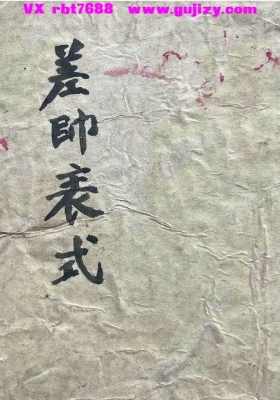 VX rbt7688 www.gujizy.com
差帅表式